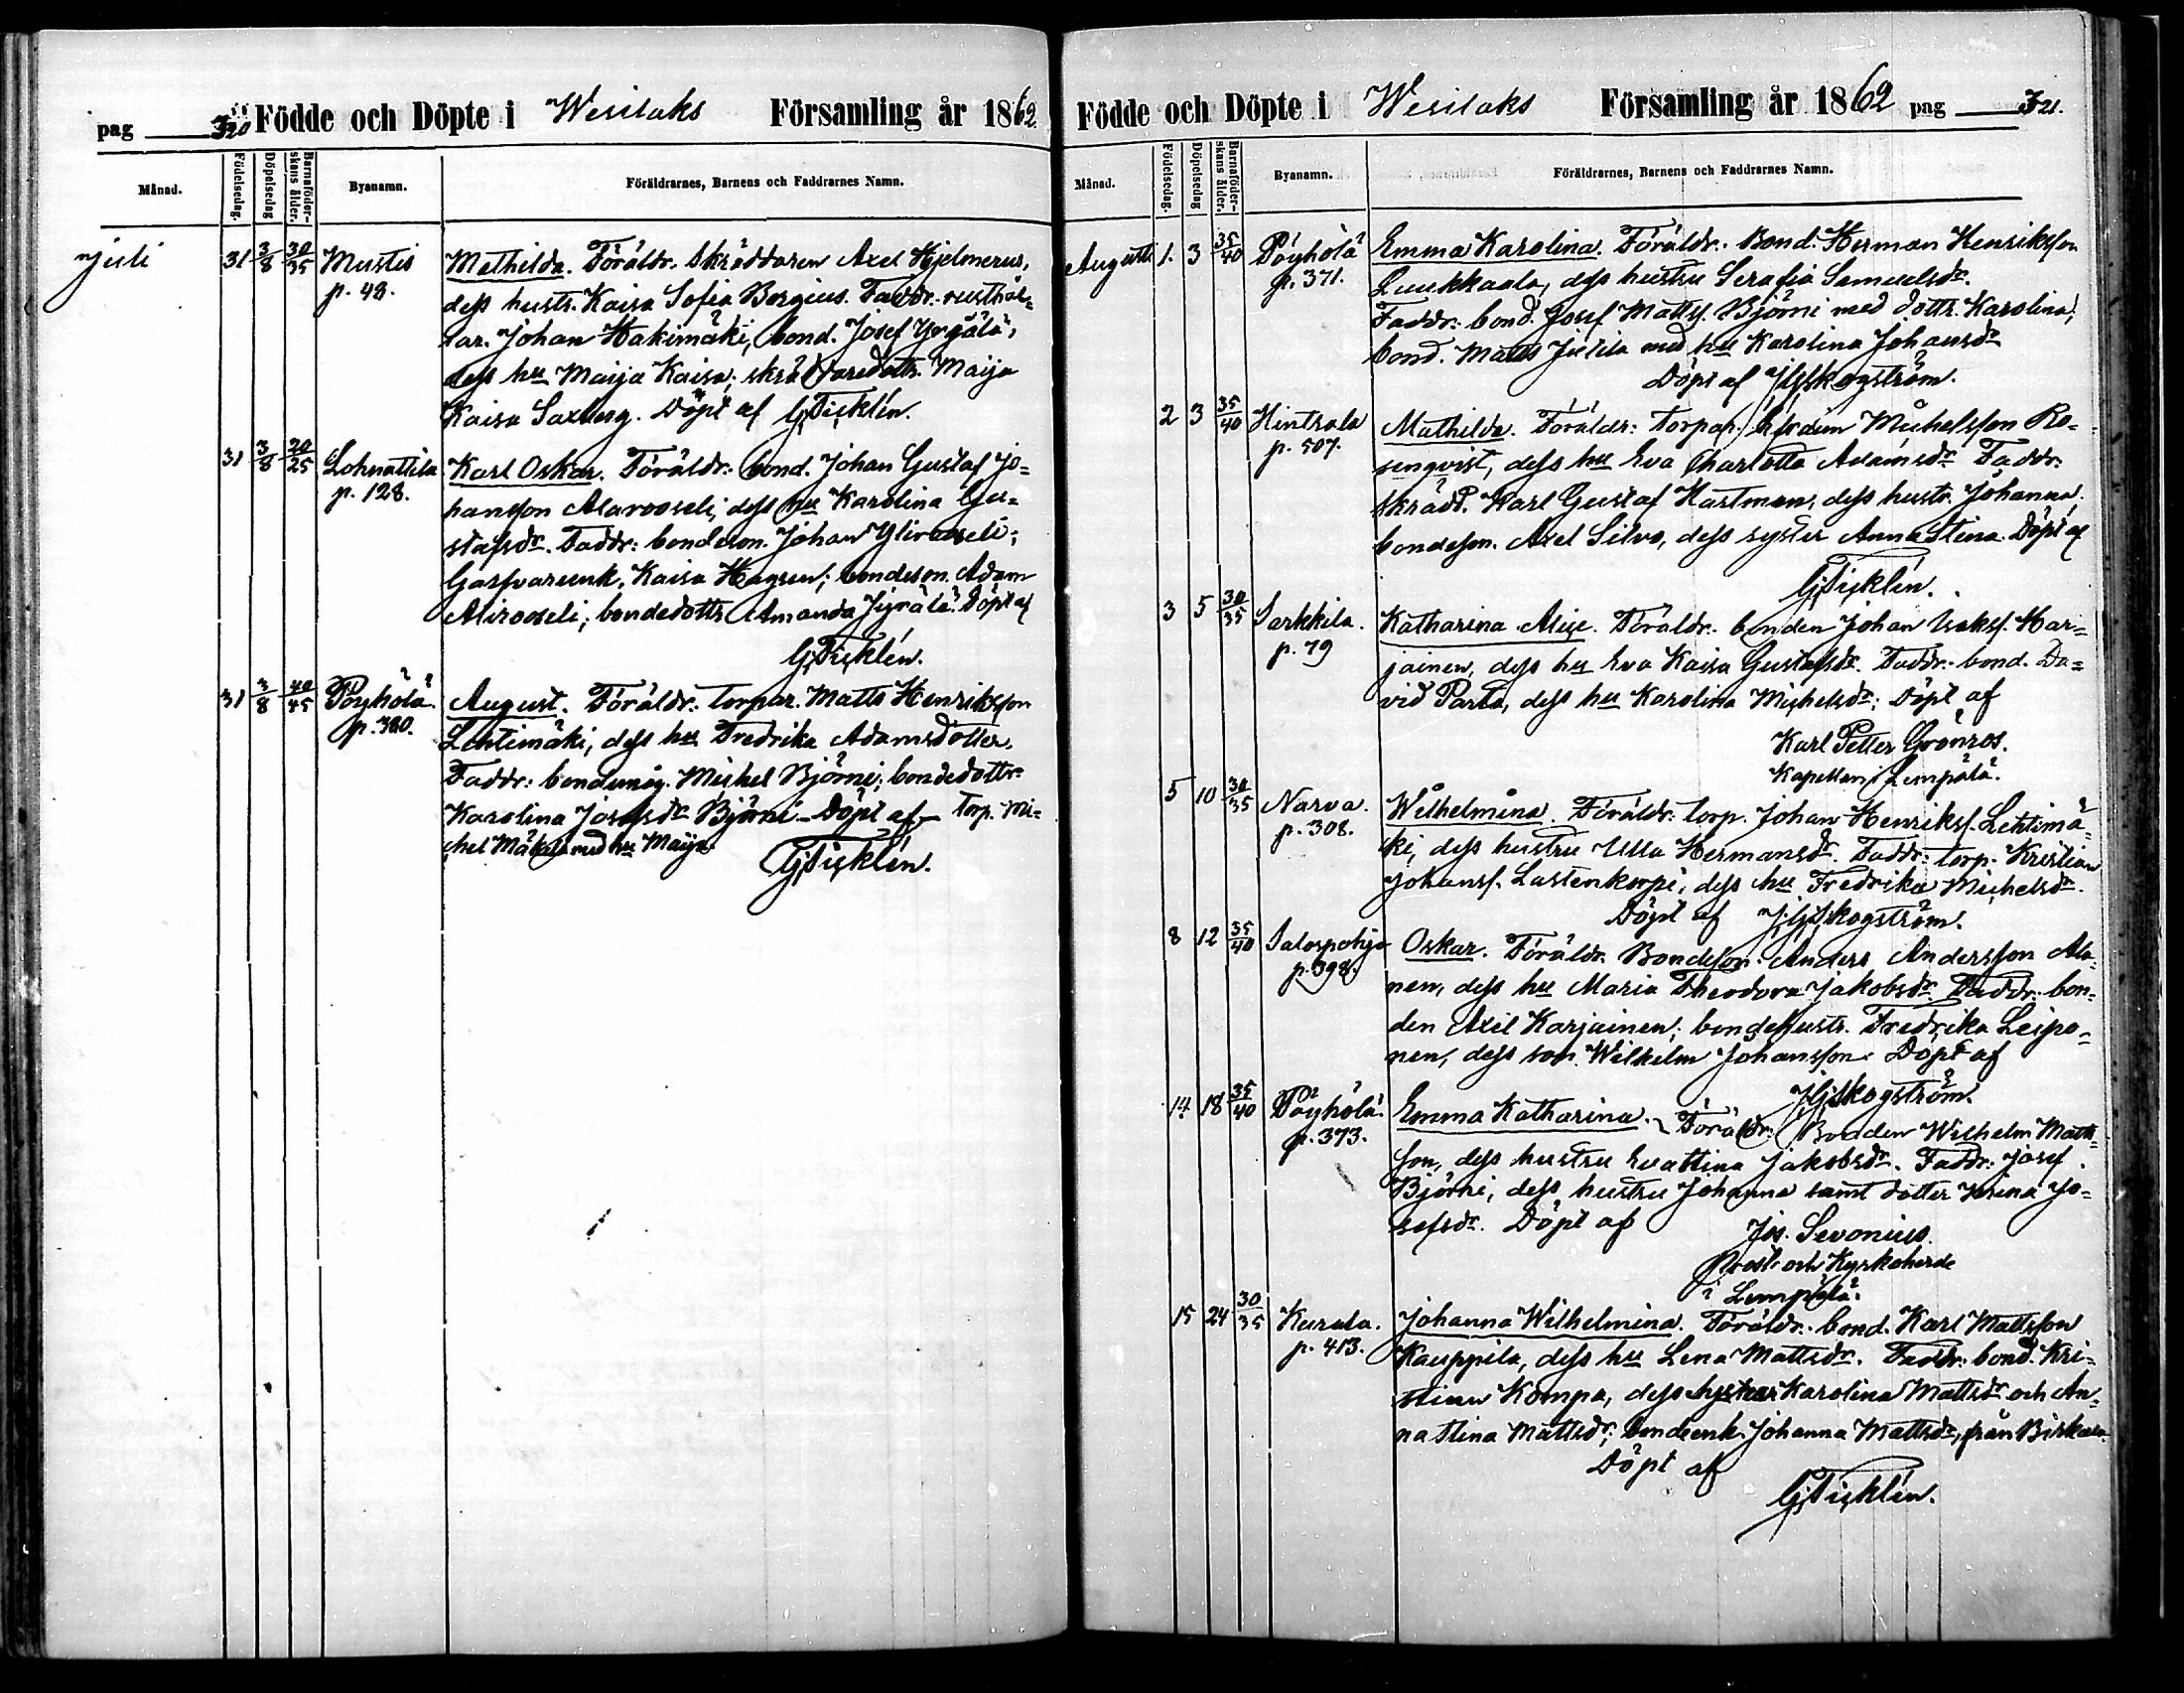 pag 320 Födde och Döpte i Wesilaks Församling år 1862
Månad. Födelsedag. Döpelsedag Barnaföderskans ålder. Byanamn. Föräldrarnes, Barnens och Faddrarnes Namn.
Juli 31 3/8 30/35 Mustis p. 48.
Mathilda. Föräldr. Skräddaren Axel Hjelmerus,
dess hustr. Kaisa Sofia Borgius. Faddr. rusthål=
lar. Johan Hakimäki, bond. Josef Yrjälä,
dess hu Maija Kaisa; skräddaredottr. Maija
Kaisa Saxberg. Döpt af G. Ticklén.
31 3/8 20/25 Lohnattila p. 128.
Karl Oskar. Föräldr. bond. Johan Gustaf Jo=
hansson Alarooseli, dess hu Karolina Gu=
stafsdr. Faddr: bondeson. Johan Ylirooseli;
Garfvareenk. Kaisa Hagren; bondeson. Adam
Alirooseli; bondedottr Amanda Jyrälä. Döpt af
G. Ticklén.
31 3/8 40/45 Pöyhölä p. 380.
August. Föräldr: torpar. Matts Henriksson
Lehtimäki, dess hu Fredrika Adamsdotter.
Faddr: bondemåg. Michel Björni; bondedottr
Karolina Josefsdr Björni – Döpt af – torp. Mi=
chel Mäkelä med hu Maija.
G. Ticklén.
Födde och Döpte i Wesilaks Församling år 1862 pag 321.
Månad. Födelsedag. Döpelsedag Barnaföderskans ålder. Byanamn. Föräldrarnes, Barnens och Faddrarnes Namn.
Augusti 1. 3 35/40 Pöyhölä p. 371.
Emma Karolina. Föräldr. Bond. Herman Henriksson
Luukkaala, dess hustru Serafia Samuelsdr.
Faddr: bond. Josef Mattss. Björni med dottr. Karolina,
bond. Matts Jutila med hu Karolina Johansdr
Döpt af J. G. Skogström.
2 3 35/40 Hintsala p. 507.
Mathilda. Föräldr: torpar. Efraim Michelsson Ro=
senqvist, dess hu Eva Charlotta Adamsdr Faddr:
skrädd. Karl Gustaf Hartman, dess hustr. Johanna.
bondeson. Axel Silvo, dess syster Anna Stina. Döpt af
G. Ticklén.
3 5 30/35 Sarkkila. p. 79
Katharina Alise. Föräldr. bonden Johan Isakss. Har=
jainen, dess hu Eva Kaisa Gustafsdr. Faddr: bond. Da=
vid Parta, dess hu Karolina Michelsdr; Döpt af
Karl Petter Grönros.
Kapellan i Lempälä.
5 10 30/35 Narva. p. 308.
Wilhelmina. Föräldr. torp. Johan Henrikss. Lehtimä=
ki, dess hustru Ulla Hermansdr. Faddr: torp. Kristian
Johanss. Lastenkorpi, dess hu Fredrika Michelsdr.
Döpt af J. G. Skogström.
8 12 35/40 Salospohja p. 398.
Oskar. Föräldr. Bondeson. Anders Andersson Ala=
nen, dess hu Maria Theodora Jakobsdr. Faddr: bon=
den Axel Karjainen; bondehustr. Fredrika Leipo=
nen, dess son Wilhelm Johansson. Döpt af
J. G. Skogström.
14 18 35/40 Pöyhölä. p. 373.
Emma Katharina. Föräldr. Bonden Wilhelm Matts=
son, dess hustru Eva Stina Jakobsdr. Faddr: Josef
Björni, dess hustru Johanna samt dotter Jo=
sefsdr. Döpt af
Jos. Sevonius.
Prost och Kyrkoherde
i Lempälä.
15 24 30/35 Kurala. p. 413.
Johanna Wilhelmina. Föräldr. bond. Karl Mattsson
Kauppila, dess hu Lena Mattsdr. Faddr: bond. Kri=
stian Kompa, dess hustru Karolina Mattsdr och An=
na Stina Mattsdr; bondeenk. Johanna Mattsdr, från Birkala
Döpt af
G. Ticklén.